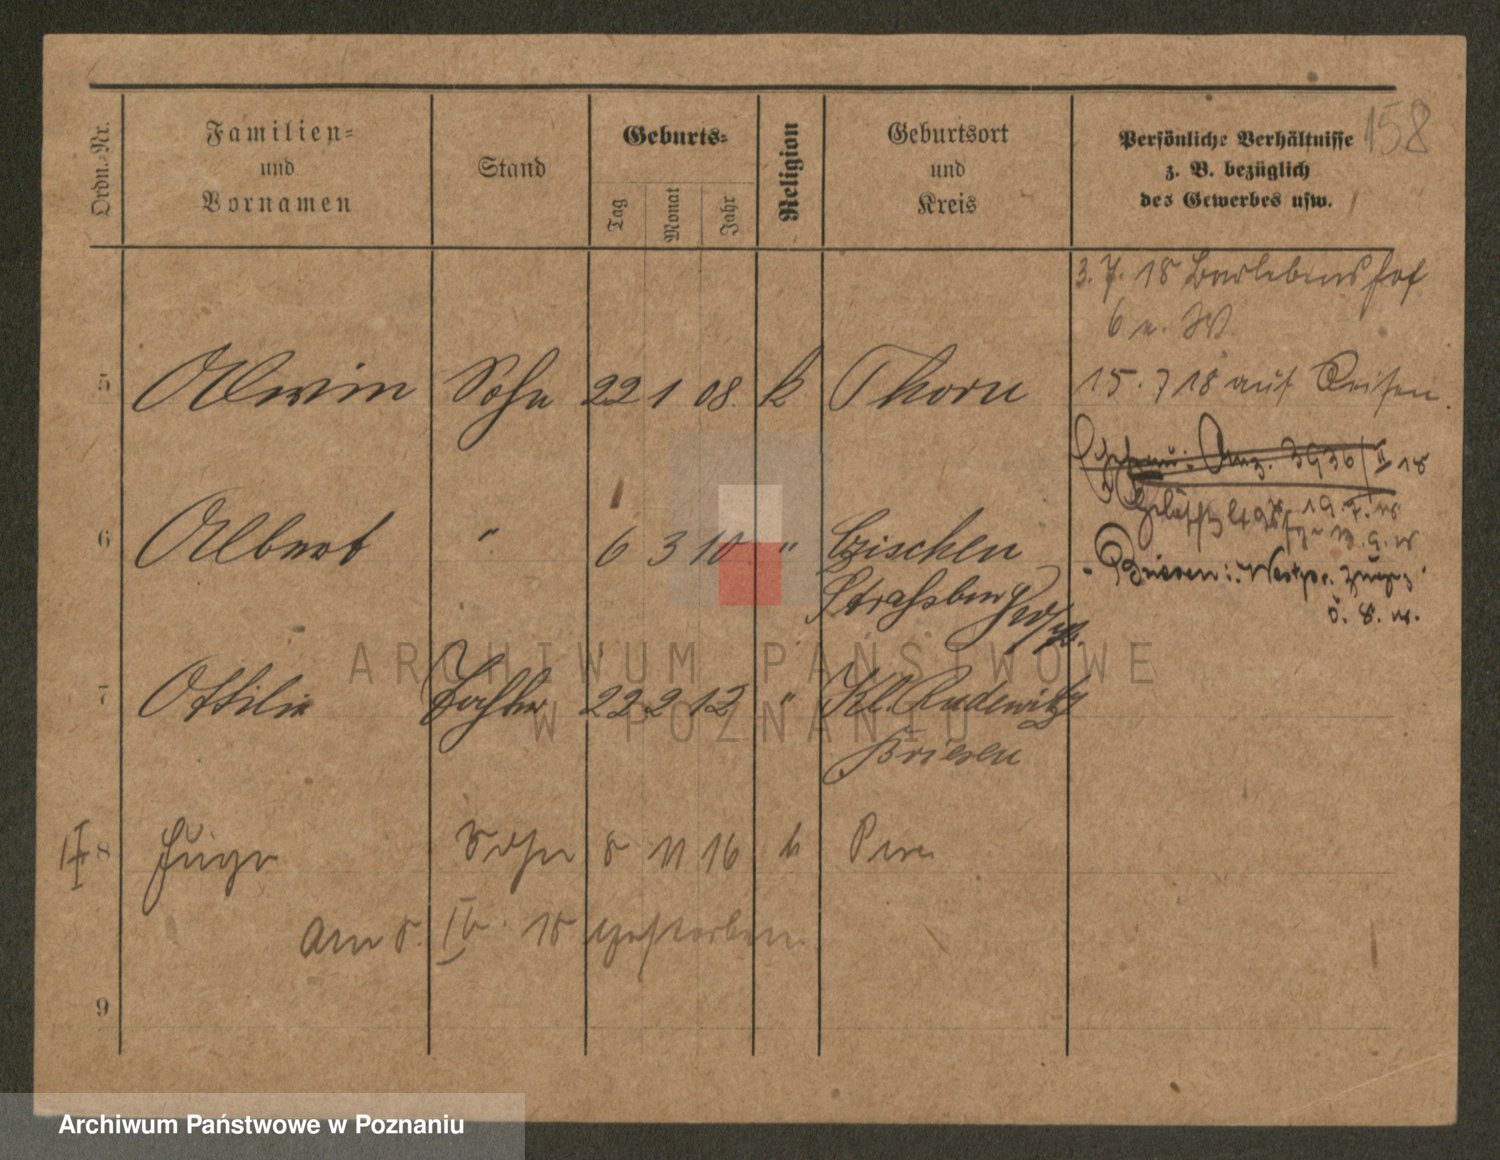 158
Ordn.-Nr.
Familien-
und
Vornamen
Stand
Geburts-
Tag
Monat
Jahr
Religion
Geburtsort
und
Kreis
Persönliche Verhältnisse
z. B. bezüglich
des Gewerbes usw.
3. 7. 18 Barlebenshof
6 n. W.
5 Alwin Sohn 22 1 08 k Thorn
15. 7 18 auf Reisen.
3936/II 18
Gelöscht 19.
6 Albert " 6 3 10 " Czischen
Strassburg
Briesen i. Westpr.
7 Ottilie Tochter 22 2 12 " Kl. Radowitz
Briesen
8 Hugo Sohn 8 11 16 k Posen
Am 8. IV. 18 gestorben.
9
ARCHIWUM PAŃSTWOWE
W POZNANIU
Archiwum Państwowe w Poznaniu